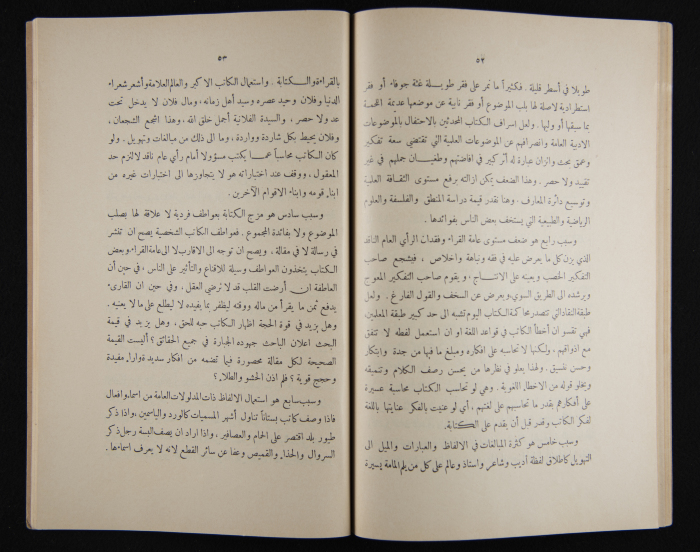 ٥٢
طويلا في أسطر قليلة . فكثيراً ما نمر على فقر طويلة غثة جوفاء أو فقر
استطرادية لاصلة لها بلب الموضوع أو فقر نابية عن موضعها عديمة اللحمة
بما سبقها أو وليها . ولعل اسراف الكتاب المحدثين بالاحتفال بالموضوعات
الادبية العامة وانصرافهم عن الموضوعات العلمية التي تقتضي سعة تفكير
وعمق بحث واتزان عبارة له أثر كبير في افاضتهم وطغيان جملهم في غير
تقييد ولا حصر . وهذا الضعف يمكن ازالته برفع مستوى الثقافة العلمية
وتوسيع دائرة المعارف . وهنا نقدر قيمة دراسة المنطق والفلسفة والعلوم
الرياضية والطبيعية التي يستخف بعض الناس بفوائدها .
وسبب رابع هو ضعف مستوى عامة القراء وفقدان الرأي العام الناقد
الذي يزن كل ما يعرض عليه في فقه ونباهة واخلاص ، فيشجع صاحب
التفكير الخصب ويعينه على الانتاج ، ويقوم صاحب التفكير المعوج
ويرشده الى الطريق السوي ويعرض عن السخف والقول الفارغ . ولعل
طبقة النقاد التي تتصدر محاكمة الكتاب اليوم تشبه الى حد كبير طبقة المعلمين
فهي تقسو ان أخطأ الكاتب في قواعد اللغة او ان استعمل لفظه لا تتفق
مع اذواقهم ، ولكنها لا تحاسبه على افكاره ومبلغ ما فيها من جدة وابتكار
وحسن تنسيق . ولهذا يعلو في نظرها من يحسن رصف الكلام وتنميقه
ويخلو قوله من الاخطار اللغوية . وهي لو تحاسب الكتاب محاسبة عسيرة
على أفكارهم بقدر ما تحاسبهم على لغتهم ، أي لو عنيت بالفكر عنايتها باللغة
لفكر الكاتب وفكر قبل أن يقدم على الكتابة .
وسبب خامس هو كثرة المبالغات في الالفاظ والعبارات والميل الى
التهويل كاطلاق لفظة أديب وشاعر واستاذ وعالم على كل من يلم المامة يسيرة
٥٣
بالقراءة والكتابة . واستعمال الكاتب الاكبر والعالم العلامة وأشعر شعراء
الدنيا وفلان وحيد عصره وسيد أهل زمانه ، ومال فلان لا يدخل تحت
عد ولا حصر ، والسيدة الفلانية أجمل خلق الله ، وهذا اشجع الشجعان ،
وفلان يحيط بكل شاردة وواردة ، وما الى ذلك من مبالغات وتهويل . ولو
كان الكاتب محاسباً عما يكتب مسؤولا أمام رأي عام ناقد لالتزم حد
المعقول ، ووقف عند اختباراته هو لا يتجاوزها الى اختبارات غيره من
ابناء قومه وابناء الاقوام الآخرين .
وسبب سادس هو مزج الكتابة بعواطف فردية لا علاقة لها بصلب
الموضوع ولا بفائدة المجموع . فعواطف الكاتب الشخصية يصح ان تنشر
في رسالة لا في مقالة ، ويصح ان توجه الى الاقارب لا الى عامة القراء وبعض
الكتاب يتخذون العواطف وسيلة للاقناع والتأثير على الناس ، في حين أن
العاطفة ان أرضت القلب قد لا ترضي العقل ، وفي حين ان القارىء
يدفع ثمن ما يقرأ من ماله ووقته ليظفر بما يفيده لا ليطلع على ما لا يعنيه .
وهل يزيد في قوة الحجة اظهار الكاتب حبه للحق ، وهل يزيد في قيمة
البحث اعلان الباحث جهوده الجبارة في جميع الحقائق ؟ أليست القيمة
الصحيحة لكل مقالة محصورة فيما تضمه من افكار سديدة وآراء مفيدة
وحجج قوية ؟ فلم اذن الحشو والطلاء ؟
وسبب سابع هو استعمال الالفاظ ذات المدلولات العامة من اسماء وافعال
فاذا وصف كاتب بستاناً تناول أشهر المسميات كالورد والياسمين ، واذا ذكر
طيور بلد اقتصر على الحمام والعصافير ، واذا اراد ان يصف البسة رجل ذكر
السروال والحذاء والقميص وعفا عن سائر القطع لانه لا يعرف اسماءها .